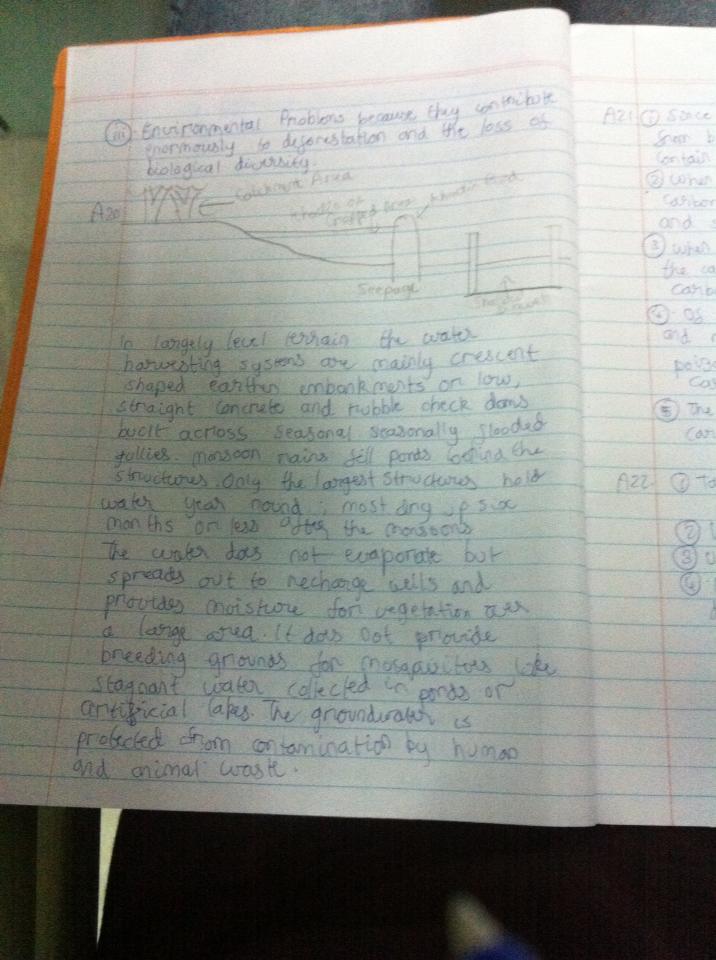 (iii) Environmental Problems because they contribute
enormously to deforestation and the loss of
biological diversity.
A20
Catchment Area
Khadin or
Cropped Area
Khadin Bund
Seepage
Shallow
Dugwell
In largely level terrain the water
harvesting systems are mainly crescent
shaped earthen embankments or low,
straight concrete and rubble check dams
built across seasonal seasonally flooded
gullies. Monsoon rains fill ponds behind the
structures. Only the largest structures hold
water year round; most dry up six
months or less after the monsoons
The water does not evaporate but
spreads out to recharge wells and
provides moisture for vegetation over
a large area. It does not provide
breeding grounds for mosquitoes like
stagnant water collected in ponds or
artificial lakes. The groundwater is
protected from contamination by human
and animal waste.
A21 ① Since
from b
contain
② When
carbon
and
③ When
the ca
carb
④ Of
and
⑤ The
car
A22 ① To
②
③
④